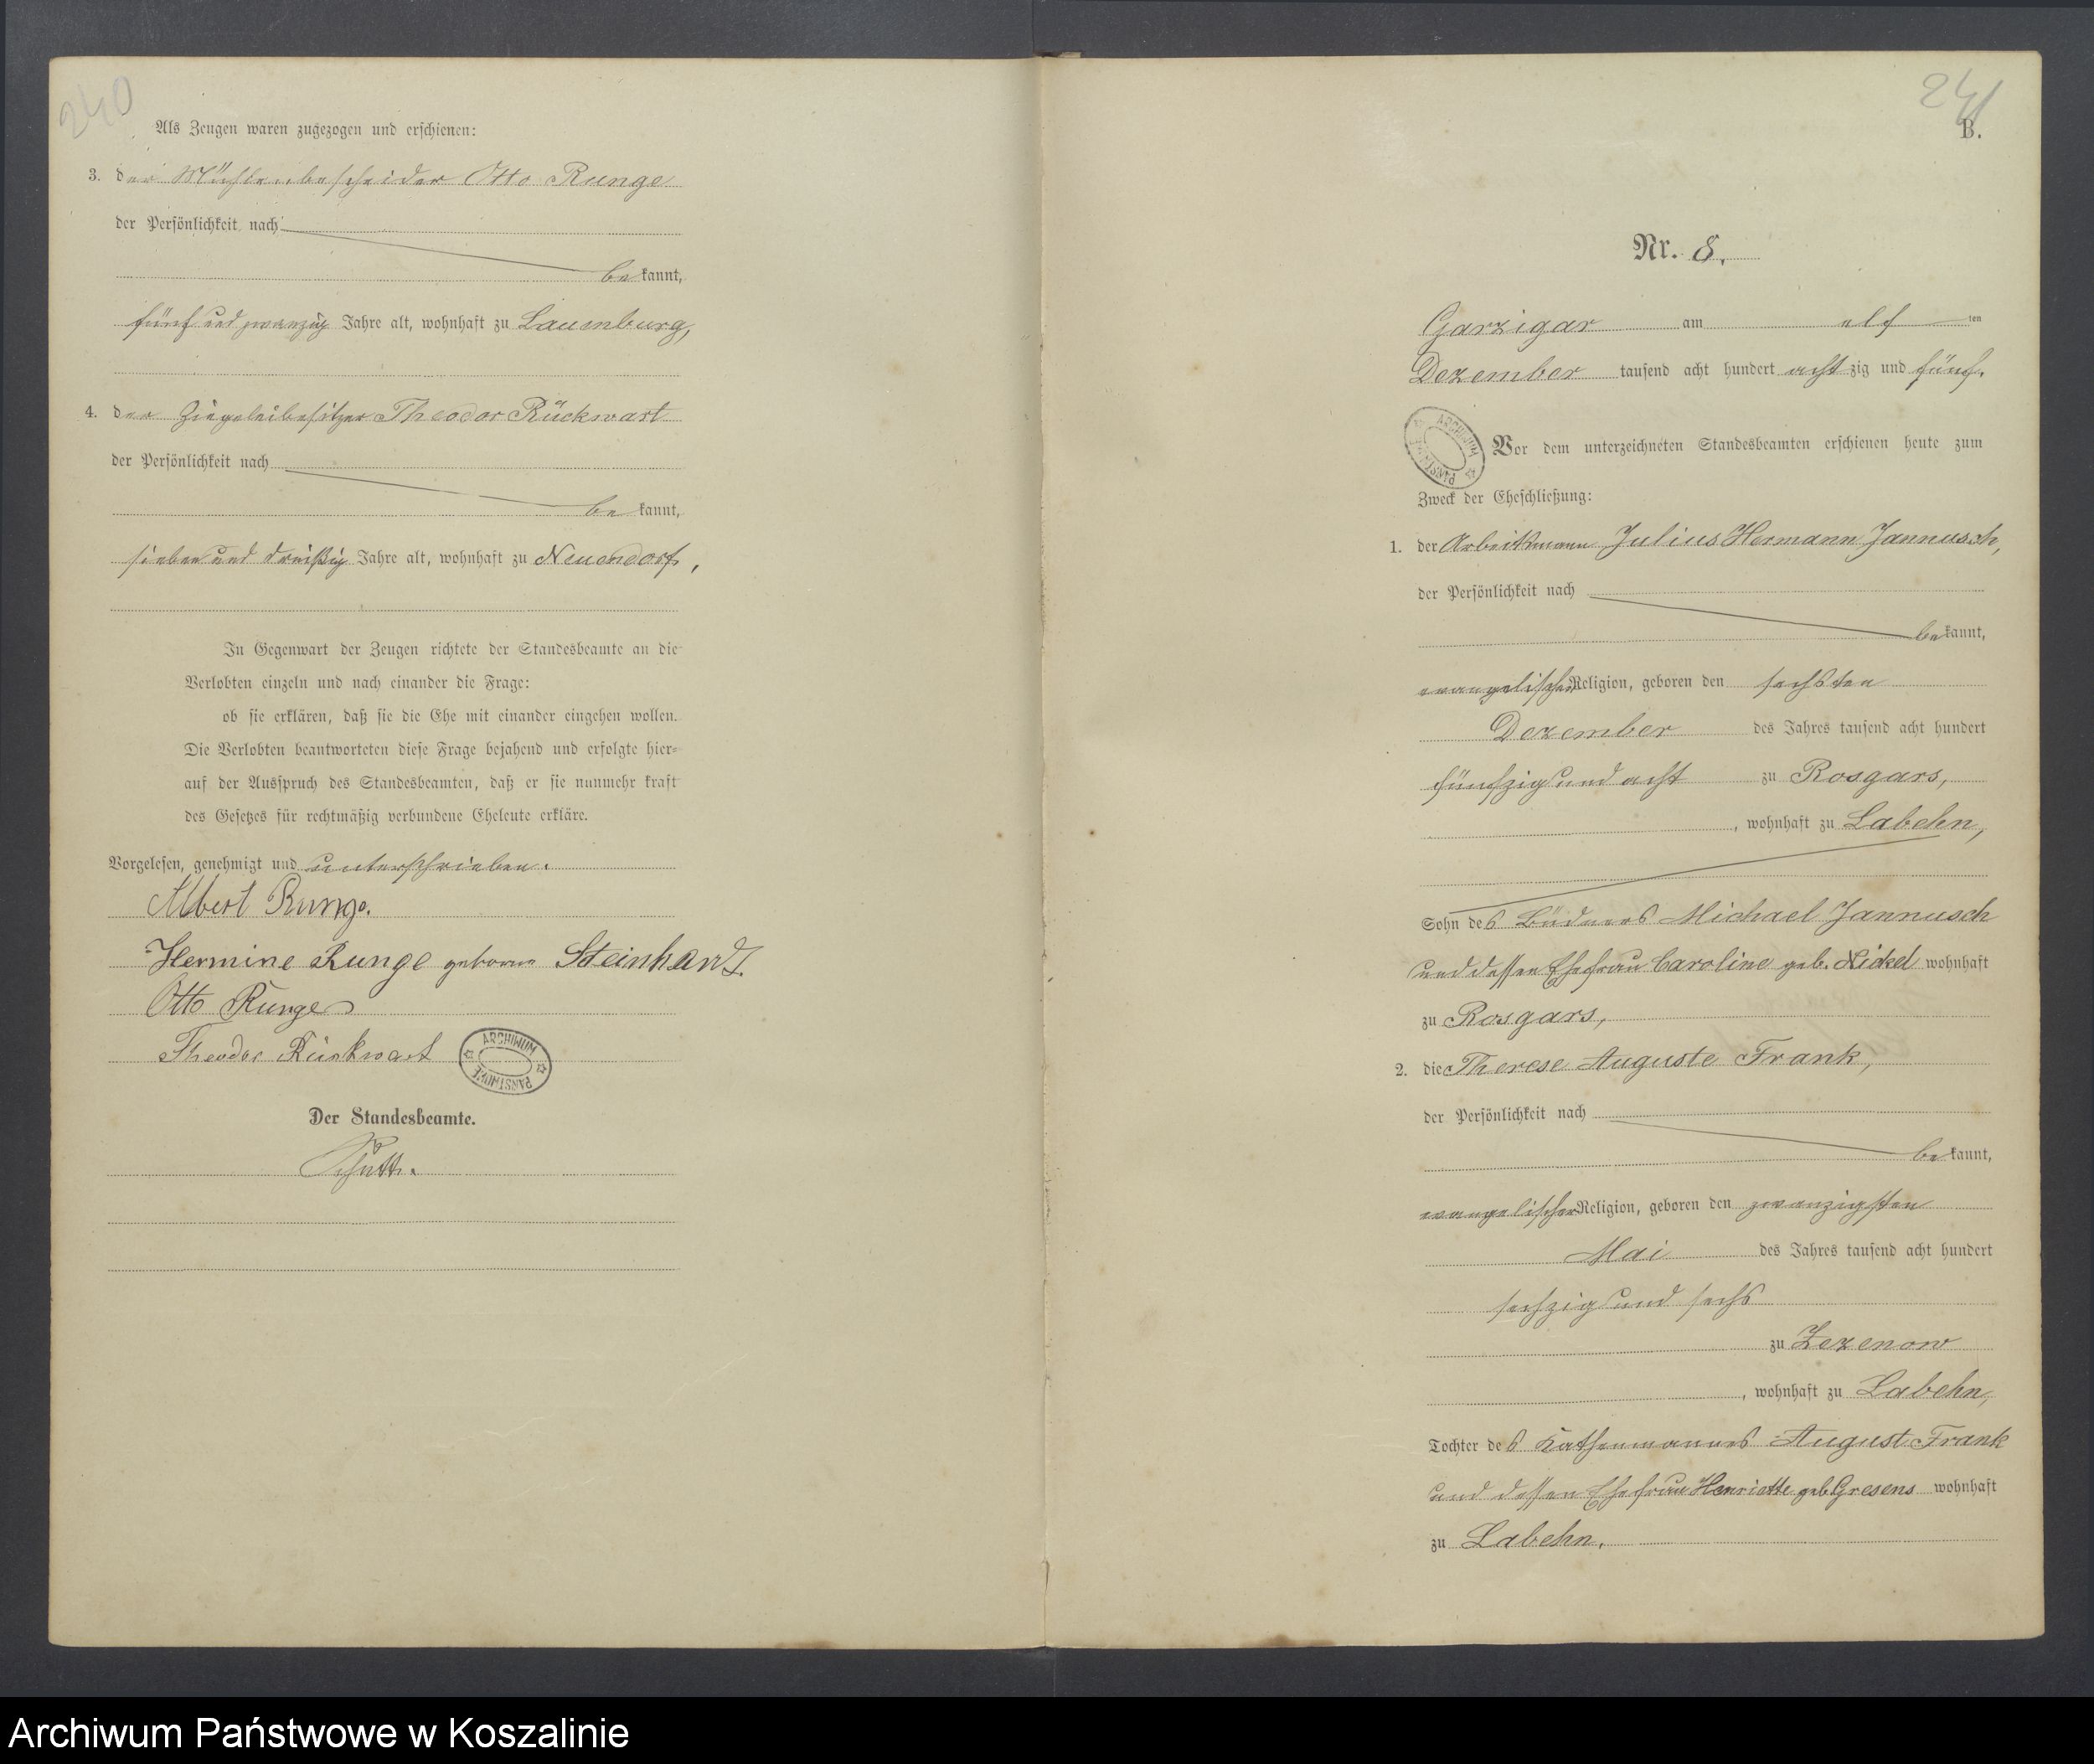 240
Als Zeugen waren zugezogen und erschienen:
3. der Mühlenbescheider Otto Runge
der Persönlichkeit nach
bekannt,
fünf und zwanzig Jahre alt, wohnhaft zu Lauenburg,
4. der Ziegeleibesitzer Theodor Rückwart
der Persönlichkeit nach
bekannt,
sieben und dreißig Jahre alt, wohnhaft zu Neuendorf,
In Gegenwart der Zeugen richtete der Standesbeamte an die
Verlobten einzeln und nach einander die Frage:
ob sie erklären, daß sie die Ehe mit einander eingehen wollen.
Die Verlobten beantworteten diese Frage bejahend und erfolgte hier-
auf der Ausspruch des Standesbeamten, daß er sie nunmehr kraft
des Gesetzes für rechtmäßig verbundene Eheleute erkläre.
Vorgelesen, genehmigt und unterschrieben.
Albert Runge.
Hermine Runge geborne Steinhardt.
Otto Runge
Theodor Rückwart
ARCHIWUM PAŃSTWOWE
Der Standesbeamte.
241
B.
Nr. 8.
Garzigar am elf ten
Dezember tausend acht hundert achtzig und fünf.
ARCHIWUM PAŃSTWOWE
Vor dem unterzeichneten Standesbeamten erschienen heute zum
Zweck der Eheschließung:
1. der Arbeitsmann Julius Hermann Jannusch,
der Persönlichkeit nach
bekannt,
evangelischer Religion, geboren den sechsten
Dezember des Jahres tausend acht hundert
fünfzig und acht zu Rosgars,
, wohnhaft zu Labehn,
Sohn des Büdners Michael Jannusch
und dessen Ehefrau Caroline geb. Nickel wohnhaft
zu Rosgars,
2. die Therese Auguste Frank,
der Persönlichkeit nach
bekannt,
evangelischer Religion, geboren den zwanzigsten
Mai des Jahres tausend acht hundert
sechzig und sechs
zu Zezenow
, wohnhaft zu Labehn,
Tochter des Kathenmannes August Frank
und dessen Ehefrau Henriette geb. Gresens wohnhaft
zu Labehn.
Archiwum Państwowe w Koszalinie